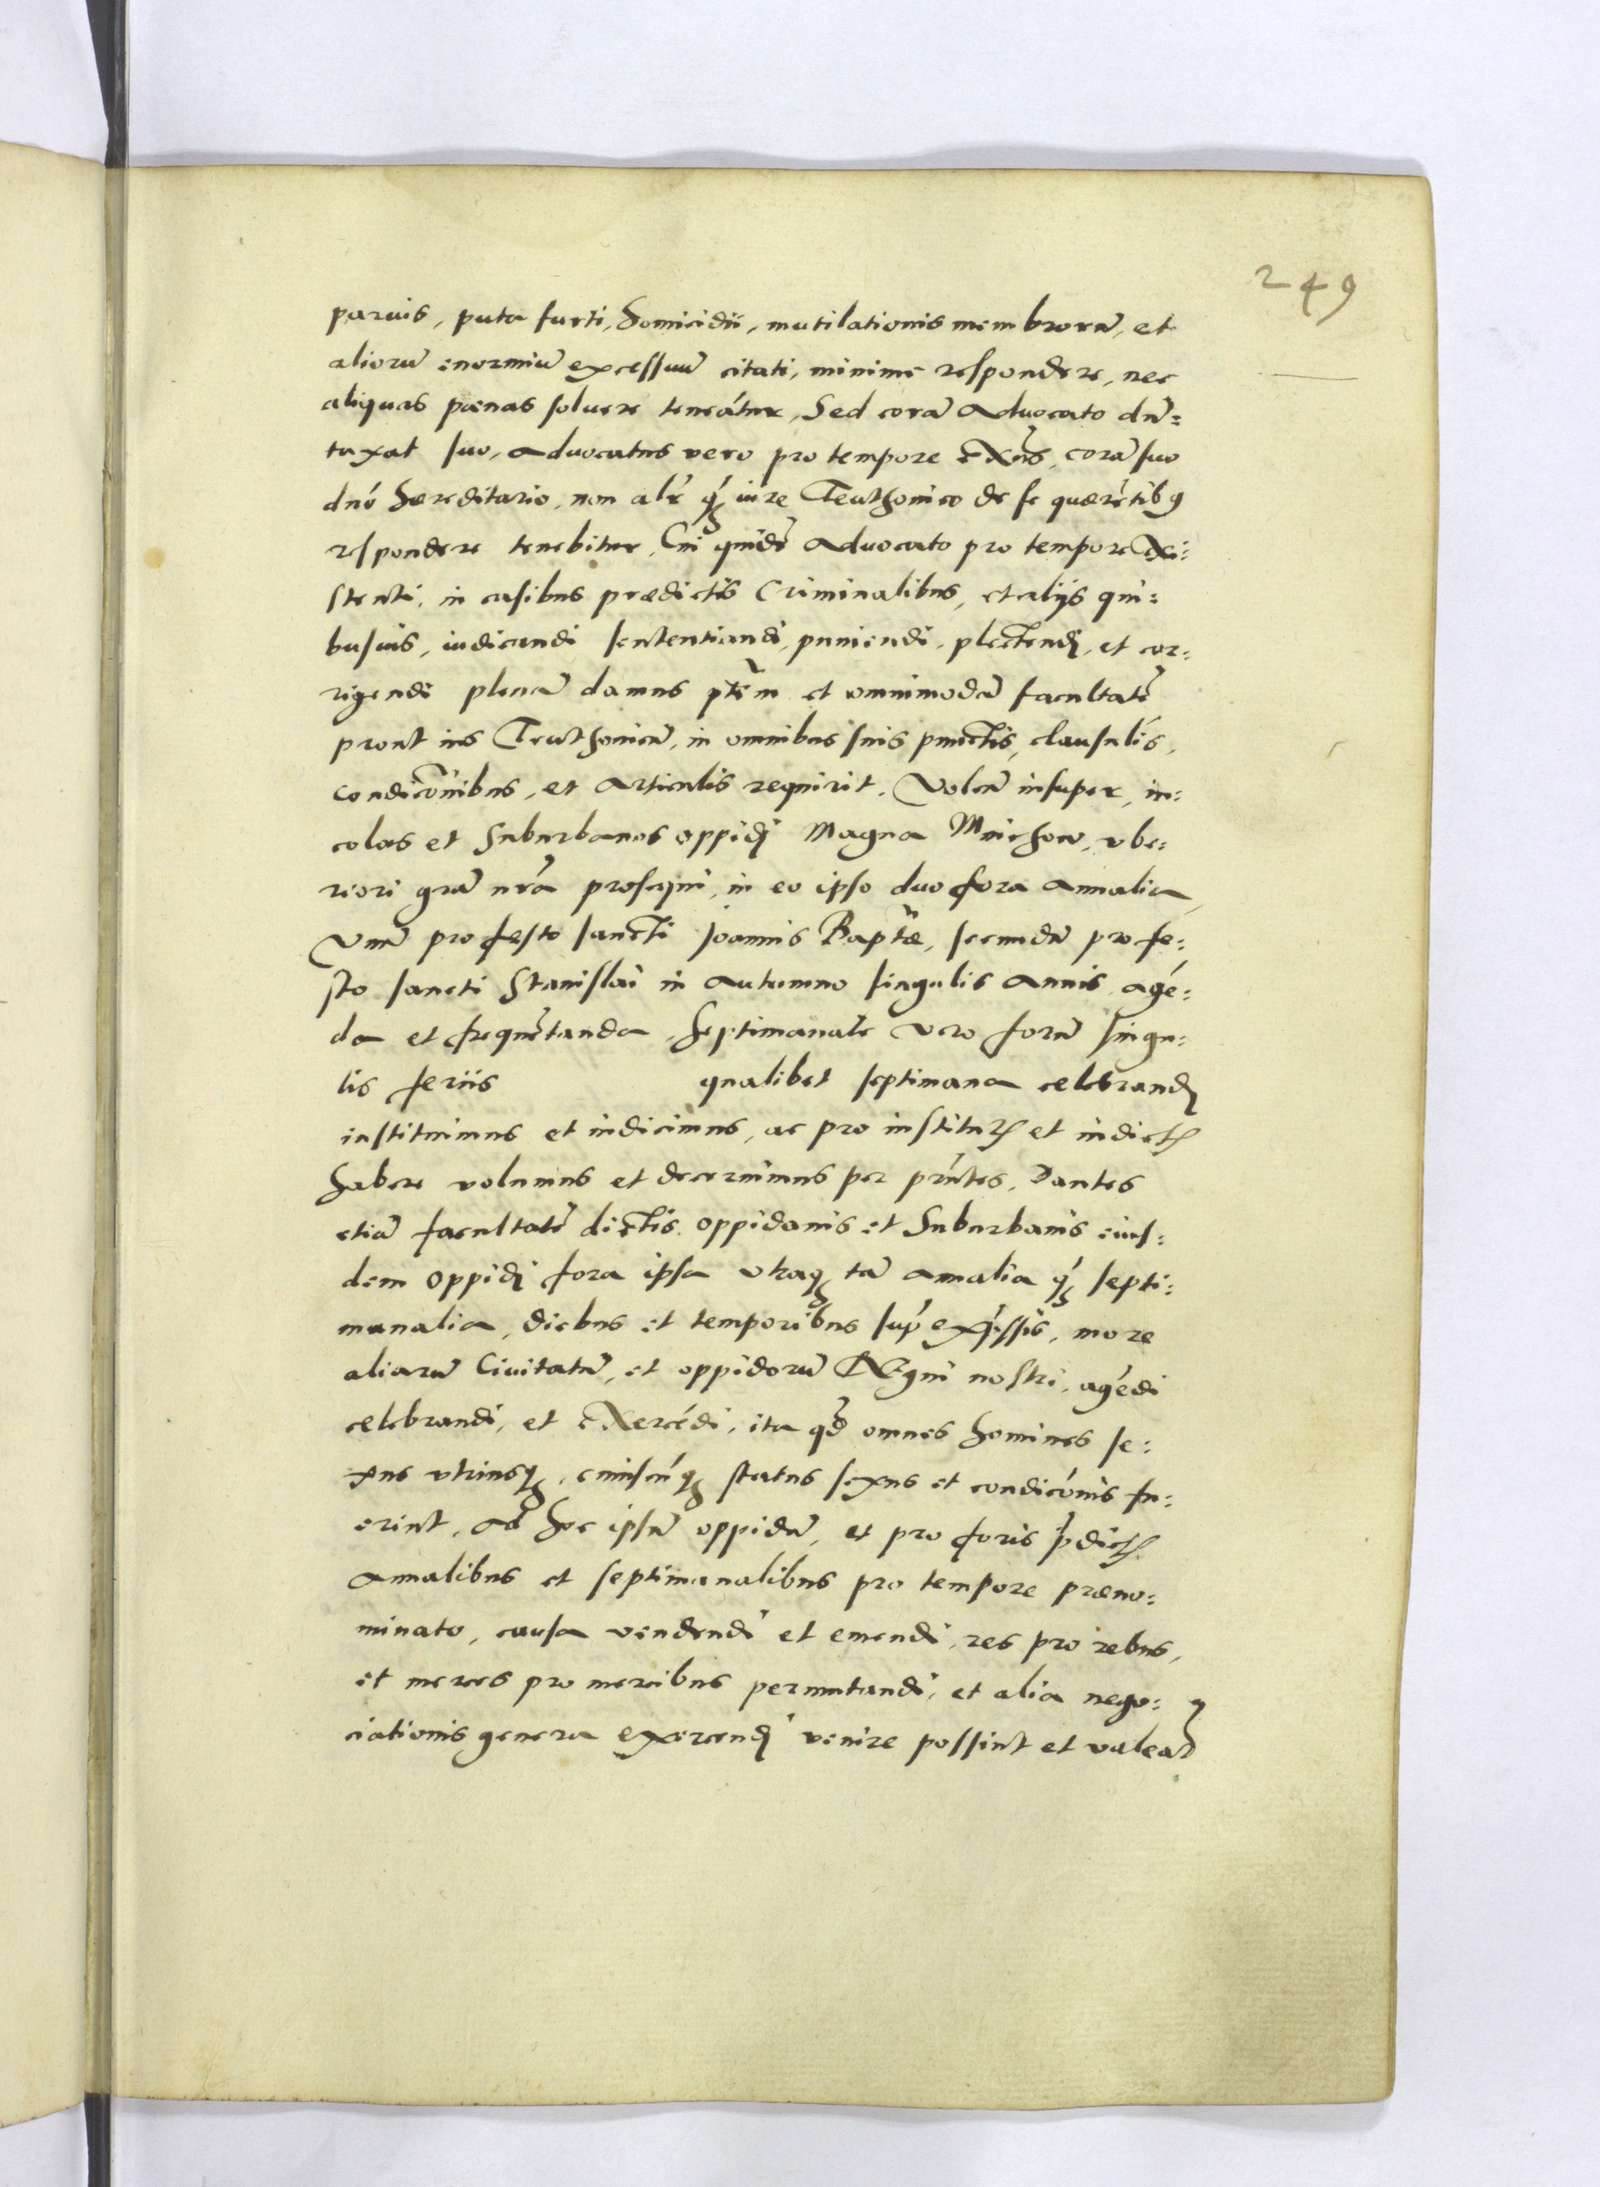 249
paruis, puta furti, homicidii, mutilationis membrorũ, et
aliorũ enormiũ excessuũ citati, minime respondere, nec
aliquas pœnas soluere teneátur, Sed corã Aduocato dũ=
taxat suo, Aduocatus vero pro tempore exñs, corã suo
dnó hæreditario, non alr̃ q̃ iure Teuthonico de se quærẽtibꝰ
respondere tenebitur, Cui quidẽ Aduocato pro tempore Exi=
stenti, in casibus prædictis Criminalibus, et alijs qui=
busuis, iudicandi sententiandi, puniendi, plectendi, et cor=
rigendi plenã damus ptẽm et omnimodã facultatẽ
prout ius Teuthonicũ, in omnibus suis punctis, clausulis,
condicõnibus, et Articulis requirit. Volen̄ insuper, in=
colas et Suburbanos oppidi Magna Michow, vbe=
riori grã nrã prosequi, in eo ipso duo fora annalia,
Vnũ pro festo sancti Joannis Baptæ, secundũ pro fe=
sto sancti Stanislai in Autumno singulis Annis agé=
da et frequẽtanda, Septimanale vero forũ singu=
lis feriis qualibet septimana celebrandi
instituimus et indicimus, ac pro institutꝭ et indictꝭ
habere volumus et decernimus per prñtes, Dantes
etiã facultatẽ dictis oppidanis et Suburbanis eius=
dem oppidi fora ipsa vtraqꝫ tã annalia q̃ septi=
manalia, diebus et temporibus supˈ expˈssis, more
aliarũ Ciuitatũ, et oppidorũ Regni nostri, agẽdi
celebrandi, et Exercẽdi, ita qđ omnes homines se=
xus vtriusqꝫ, cuiuscũqꝫ status sexus et condicõnis fu=
erint, ad hoc ipsũ oppidũ, et pro foris p̃dictꝭ
Annalibus et septimanalibus pro tempore præno=
minato, causa vendendi et emendi, res pro rebus,
et merces pro mercibus permutandi, et alia nego=
ciationis genera exercendi venire possint et valeat